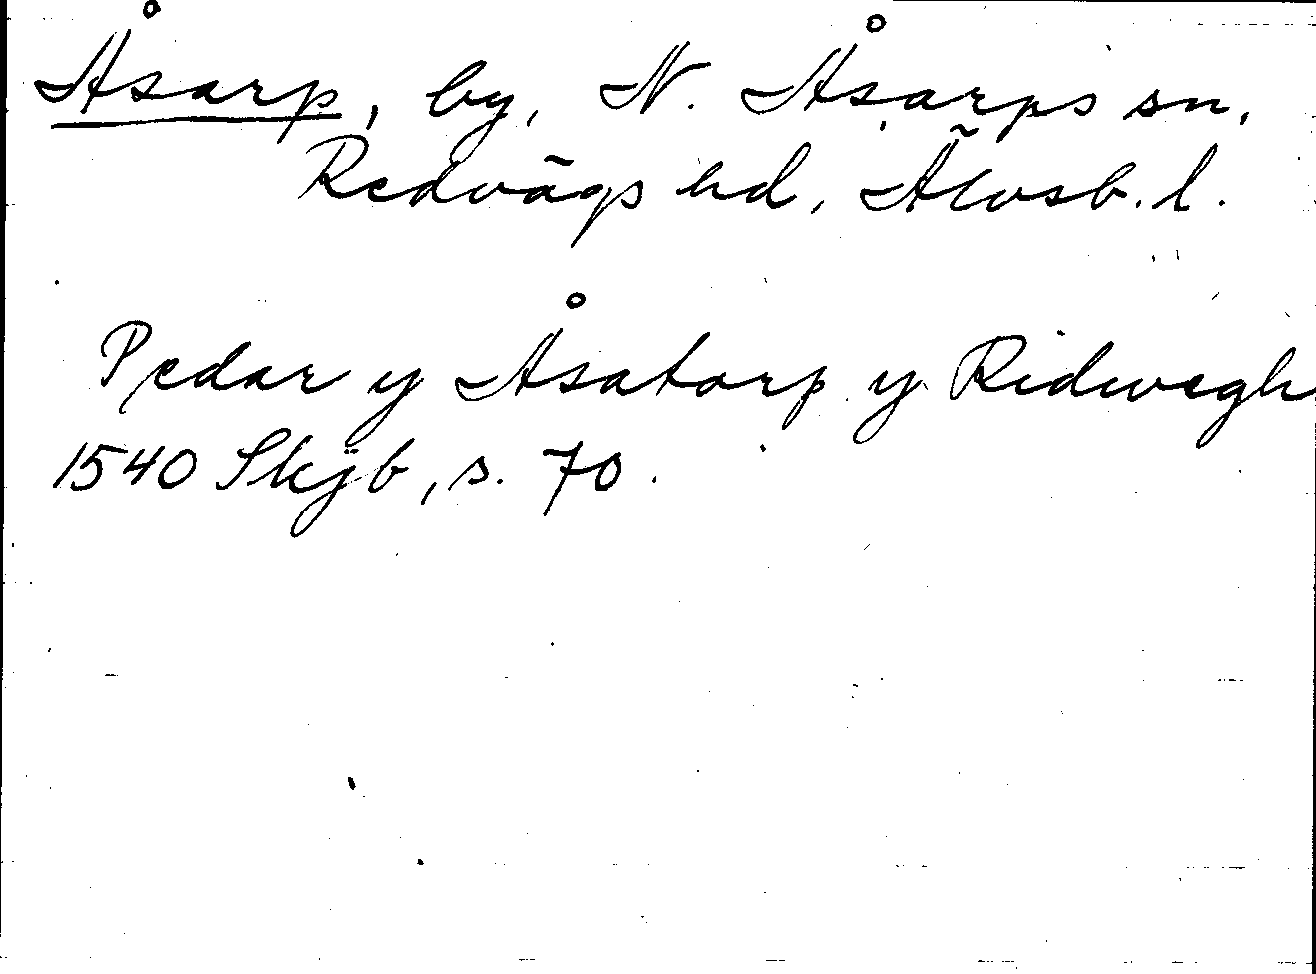 Åsarp, by, N. Åsarps sn,
Redvägs hd, Älvsb. l.
Pedar y Åsatorp y Ridwegh
1540 Skjb, s. 70.